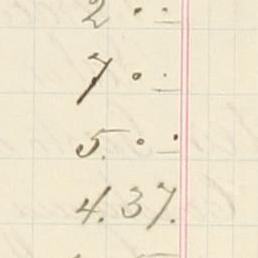 2 . .
7 . .
5. . .
4.37.